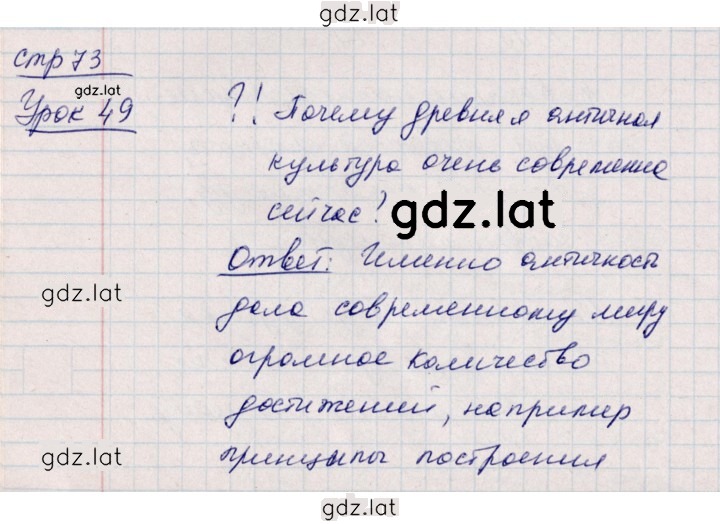 gdz.lat
стр 73
gdz.lat
Урок 49
?! Почему древняя античная
культура очень современна
сейчас?
gdz.lat
Ответ: Именно античность
gdz.lat
дала современному миру
огромное количество
достижений, например
gdz.lat
принципы построения
gdz.lat